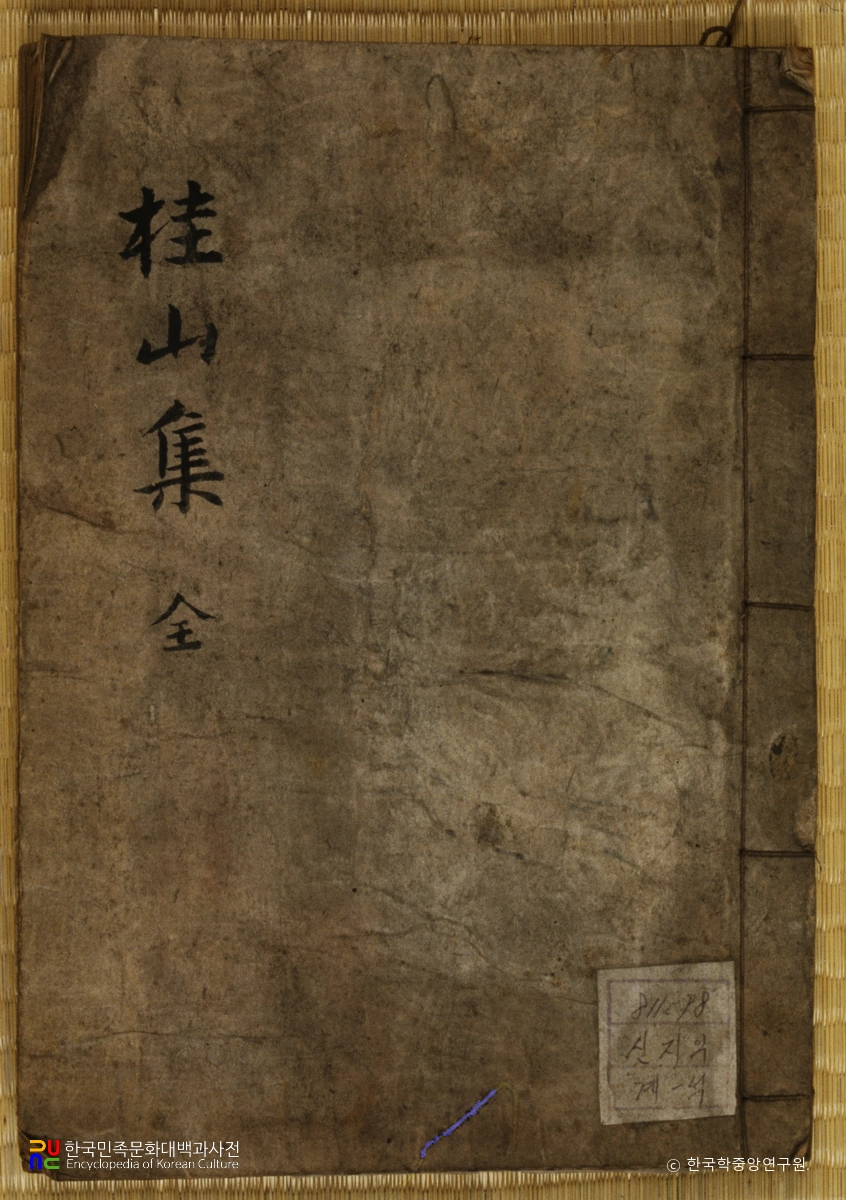 桂山集 全
811.98
신지익
한국민족문화대백과사전
Encyclopedia of Korean Culture
© 한국학중앙연구원